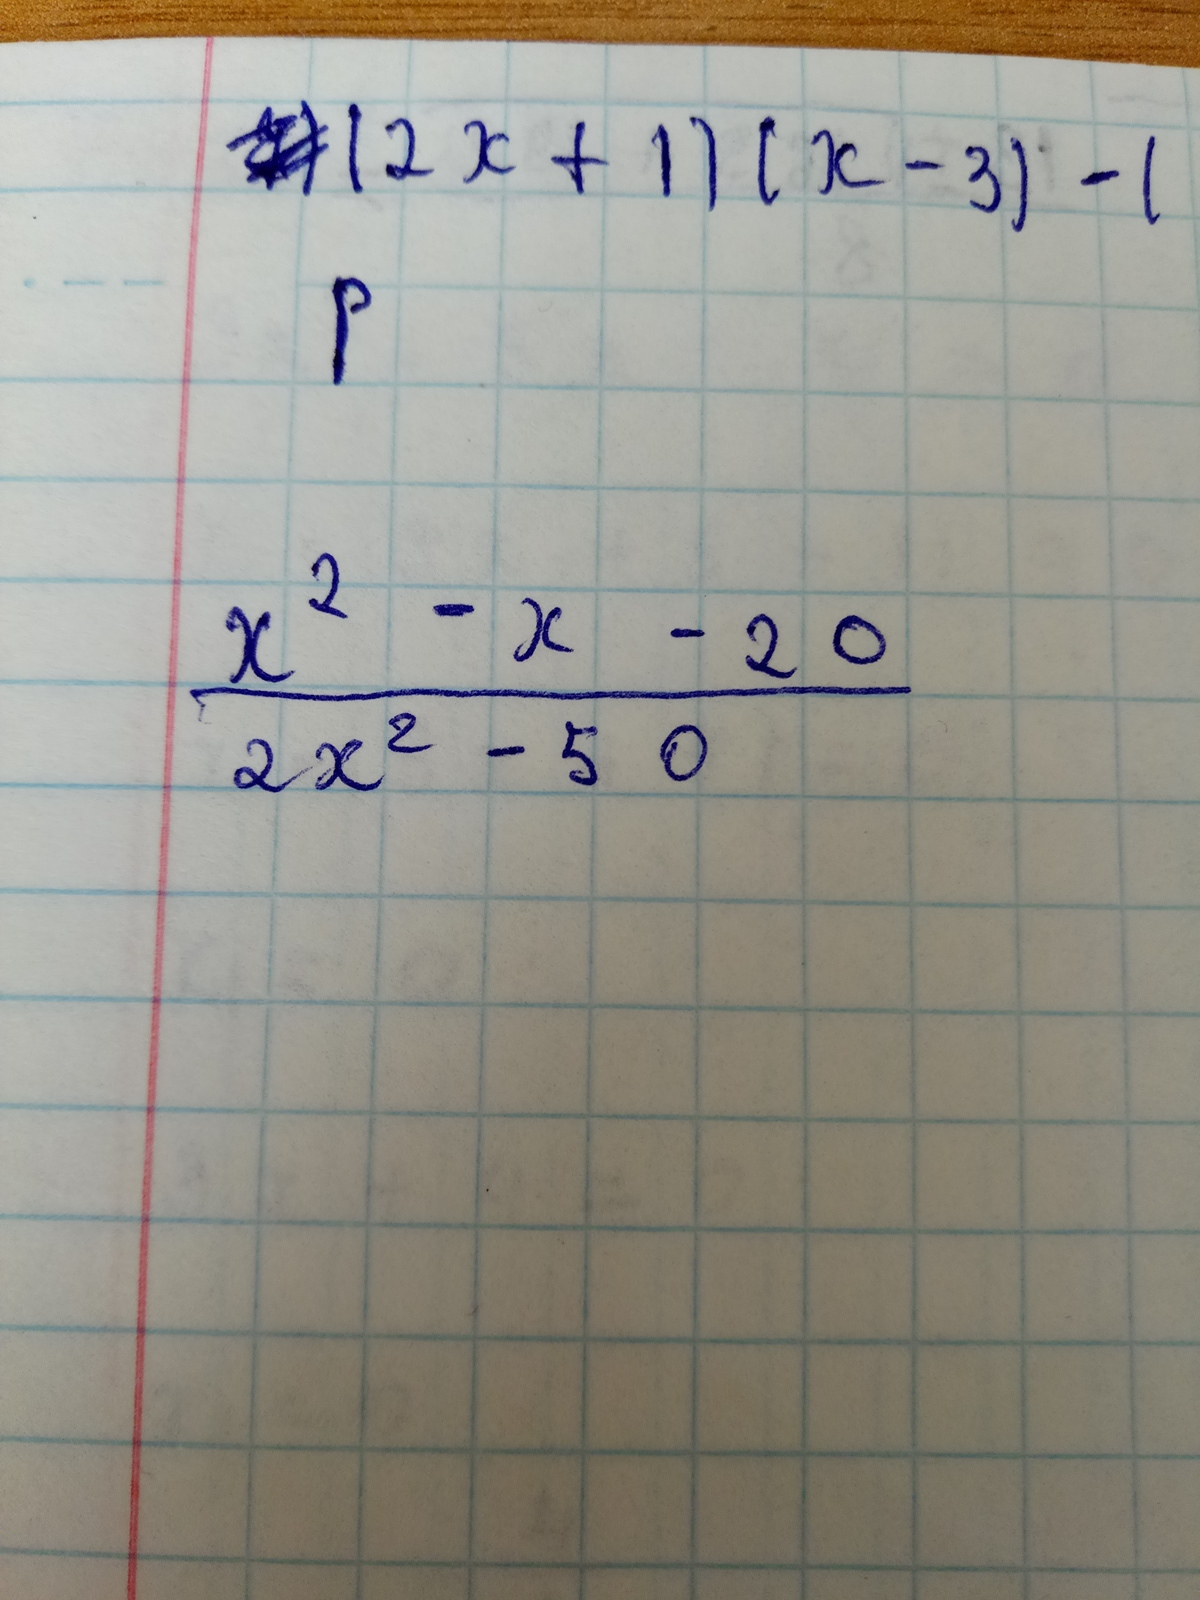 (2x + 1)(x - 3) - (
P
x² - x - 20
2x² - 50